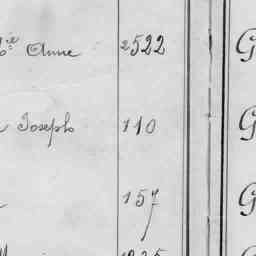 Anne 2522 G
Joseph 110 G
157 G